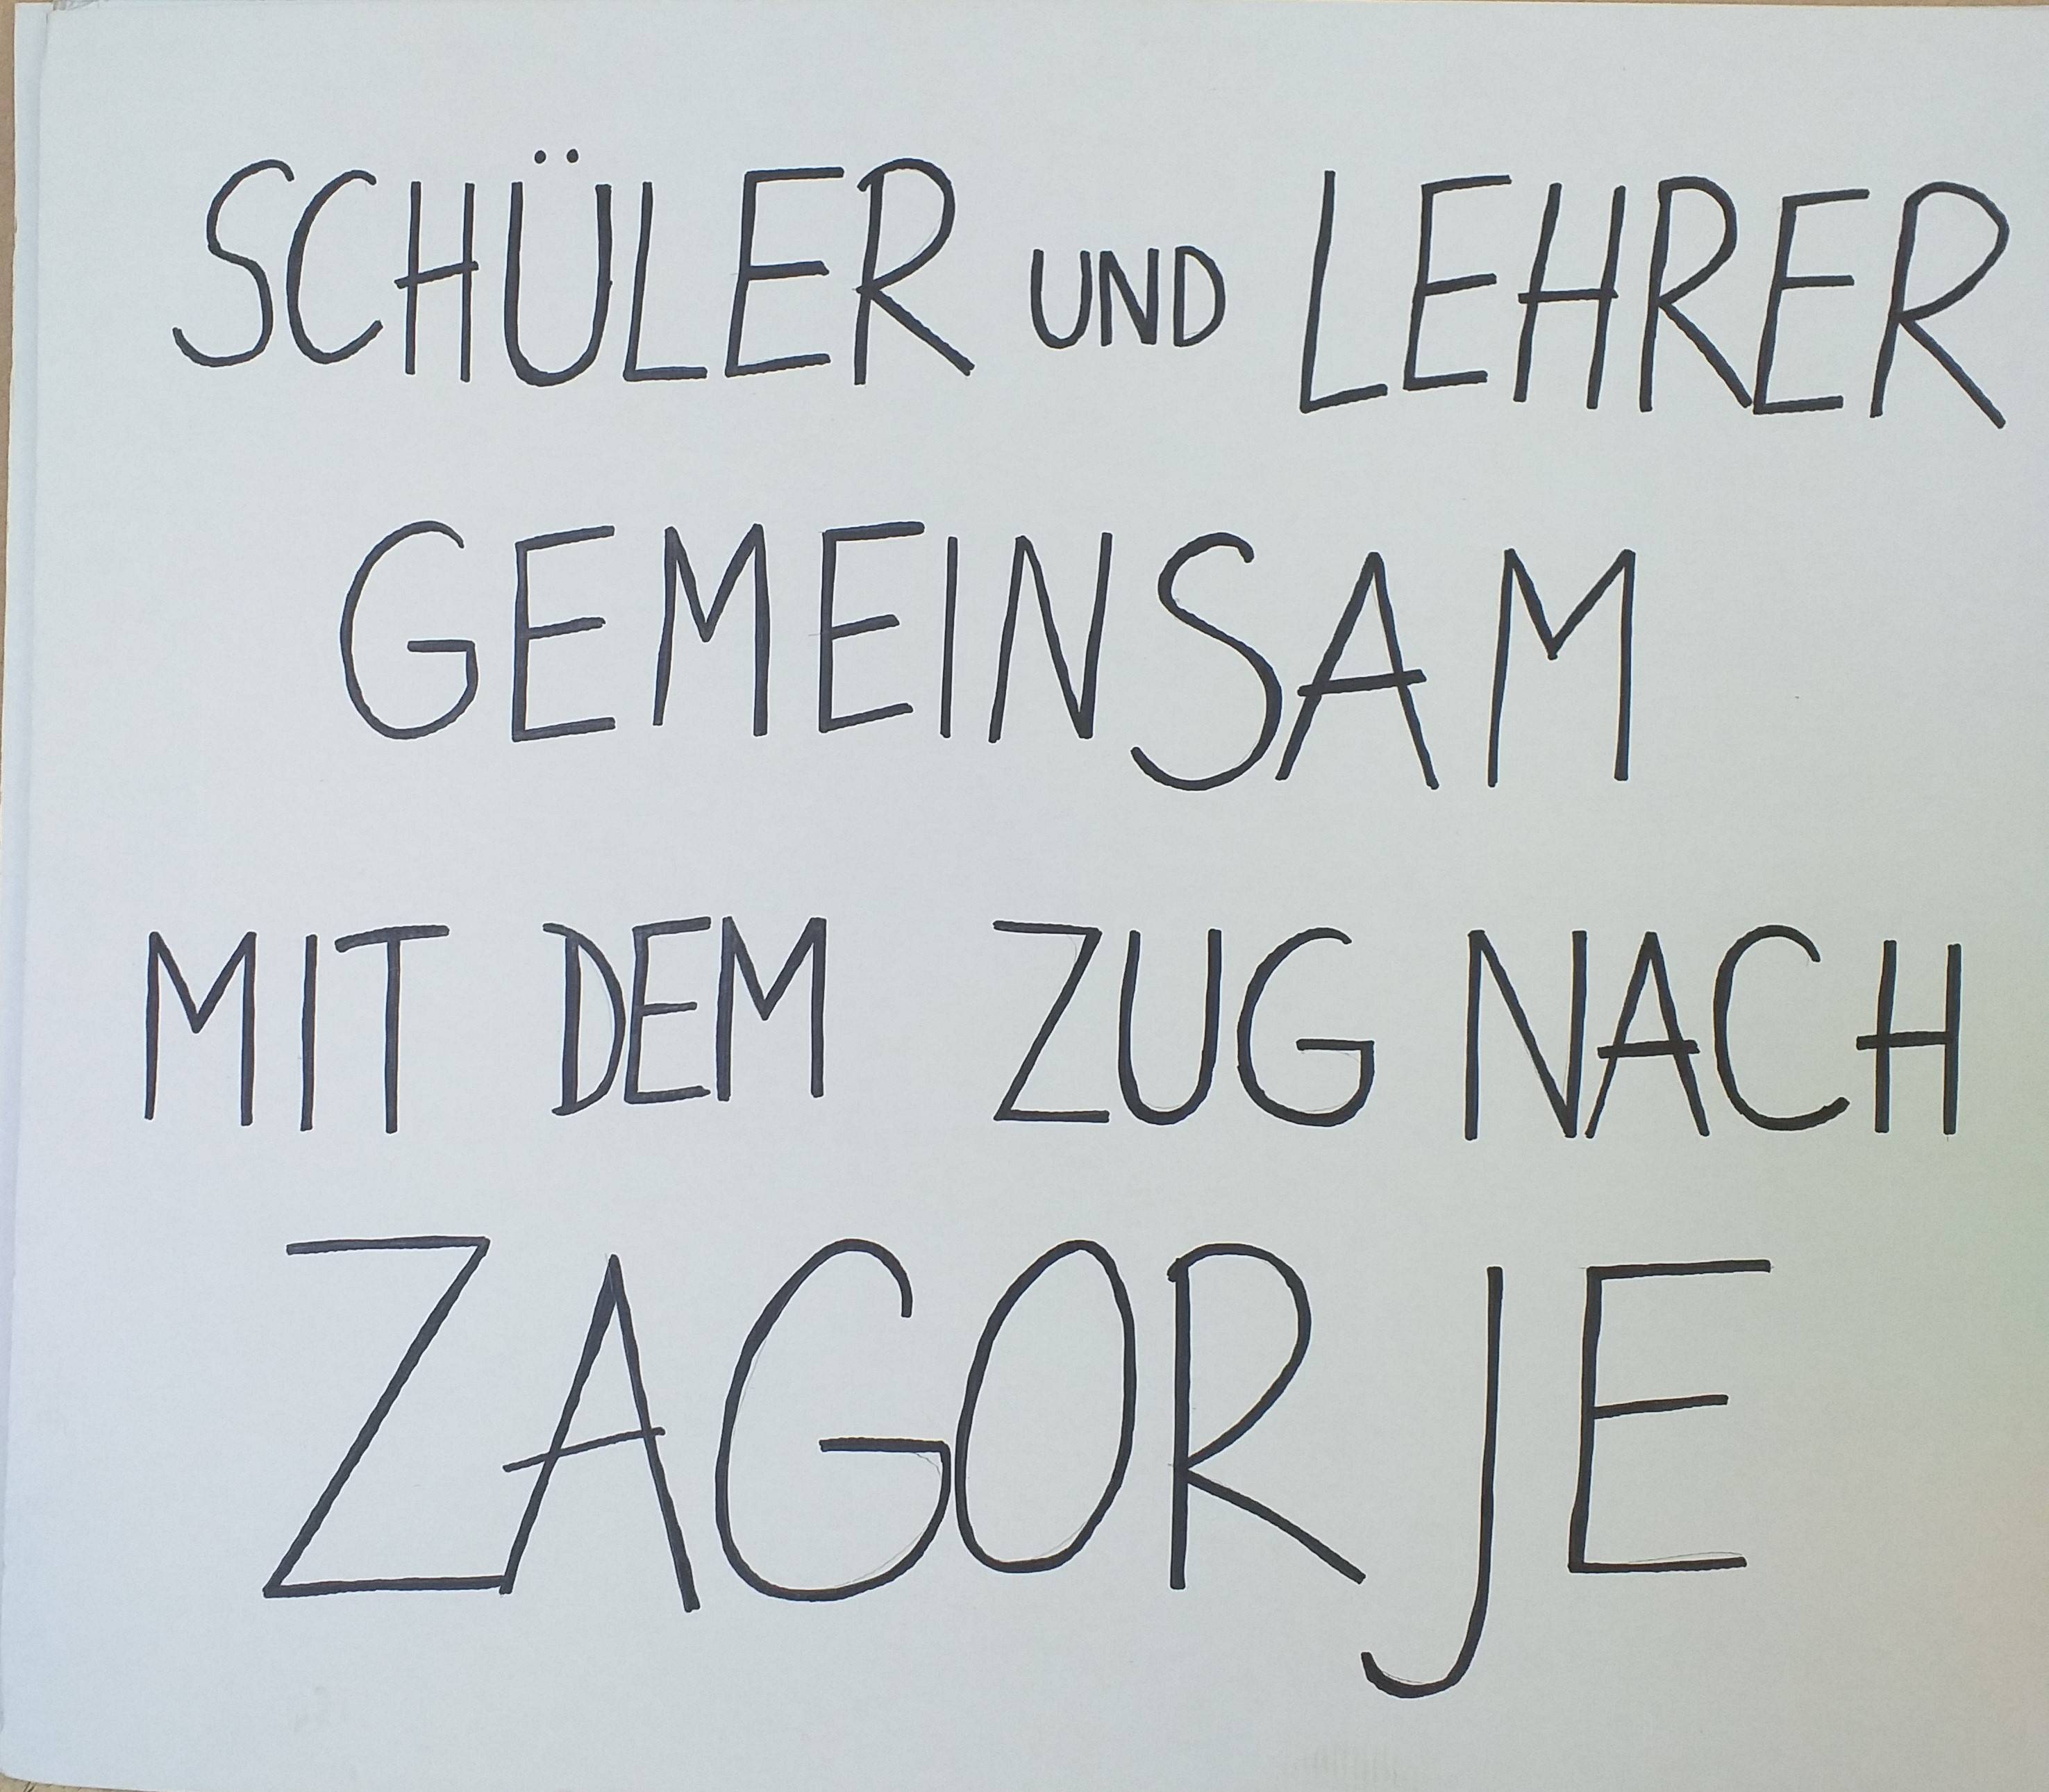 SCHÜLER UND LEHRER
GEMEINSAM
MIT DEM ZUG NACH
ZAGORJE